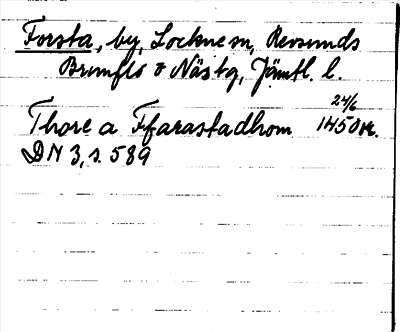 Forsta, by, Lockne sn, Revsunds
Brunflo o Näs tg, Jämtl. l.
24/6
Thore a Ffarastadhom 1450 or.
DN 3, s. 589